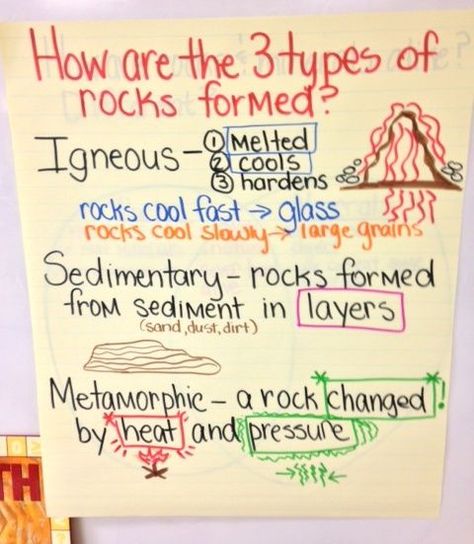 How are the 3 types of
rocks formed?
Igneous - ① Melted
② cools
③ hardens
rocks cool fast → glass
rocks cool slowly → large grains
Sedimentary - rocks formed
from sediment in layers
(sand, dust, dirt)
Metamorphic - a rock changed!
by heat and pressure
TH